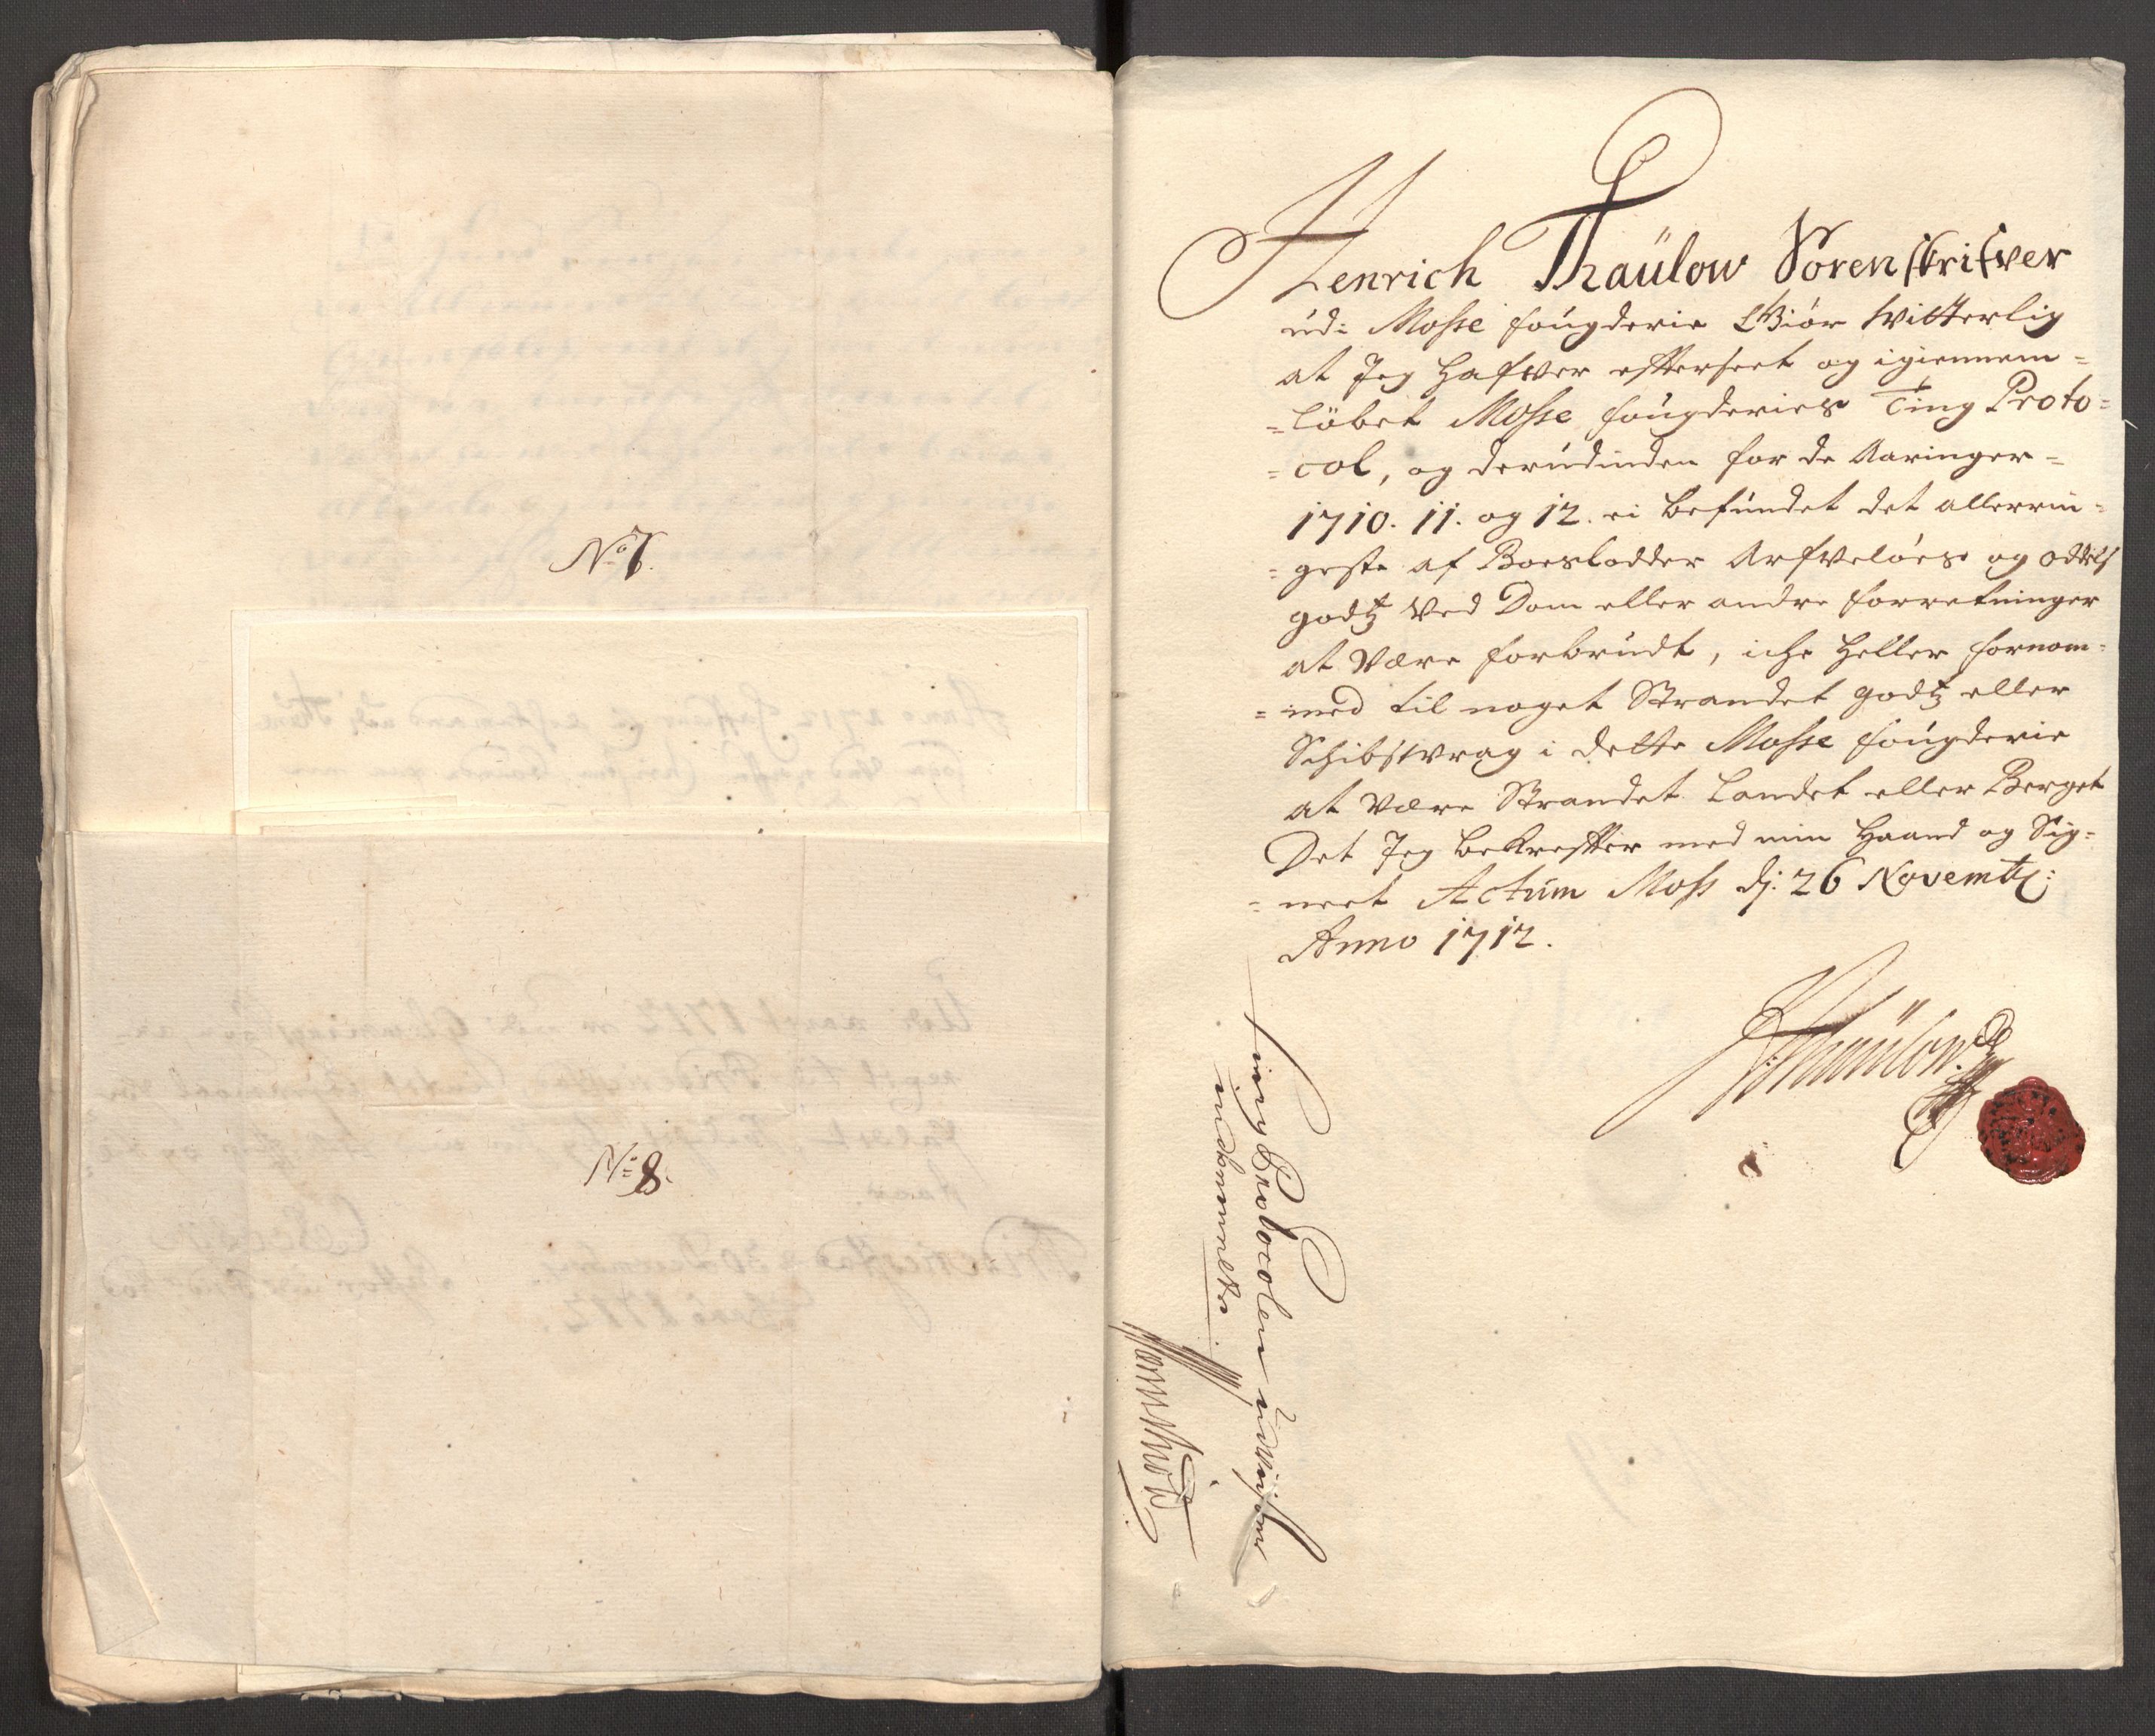 No 7.
No 8.
Henrich Thaülow Sorenskrifver
ud: Mosse fougderie Giör Witterlig
at Jeg hafver efterseet og igiennem=
=löbet Mosse fougderies Ting Proto=
=col, og derudinden for de Aaringer=
1710. 11. og 12. ei befundet det allerrin=
=geste af Boeslodder Arfvelöes og odels
godtz ved Dom eller andre forretninger
at være forbrudt, iche heller fornom=
=med til noget Strandet godtz eller
Schibsvrag i dette Mosse fougderie
at være Strandet Landet eller Berget
Det Jeg bekrefter med min haand og Sig=
=nert Actum Moss dj: 26 Novembr:
Anno 1712.
HThaülow.
ting Protocolen udviser